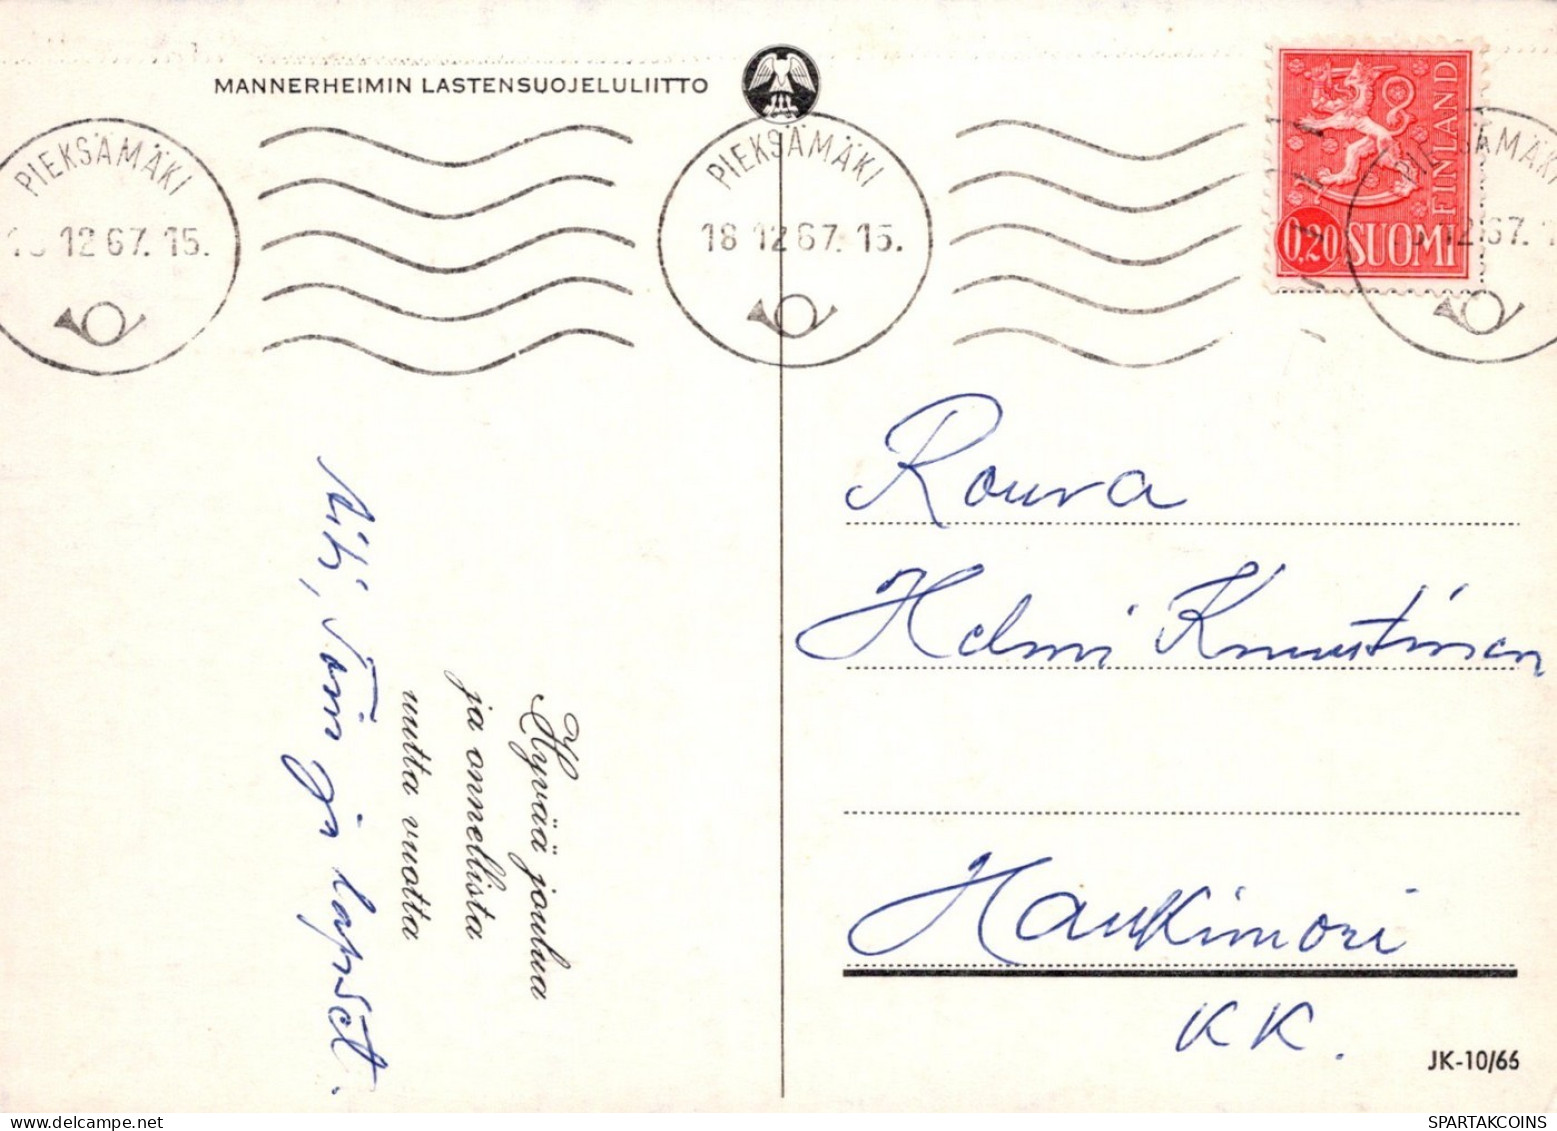 MANNERHEIMIN LASTENSUOJELULIITTO
PIEKSÄMÄKI
12 67. 15.
PIEKSÄMÄKI
18 12 67. 15.
PIEKSÄMÄKI
12 67. 1
FINLAND
0,20 SUOMI
Hyvää joulua
ja onnellista
uutta vuotta
ja lapset.
Rouva
Helmi Knuutinen
Haukivuori
KK.
JK-10/66
SPARTAKCOINS